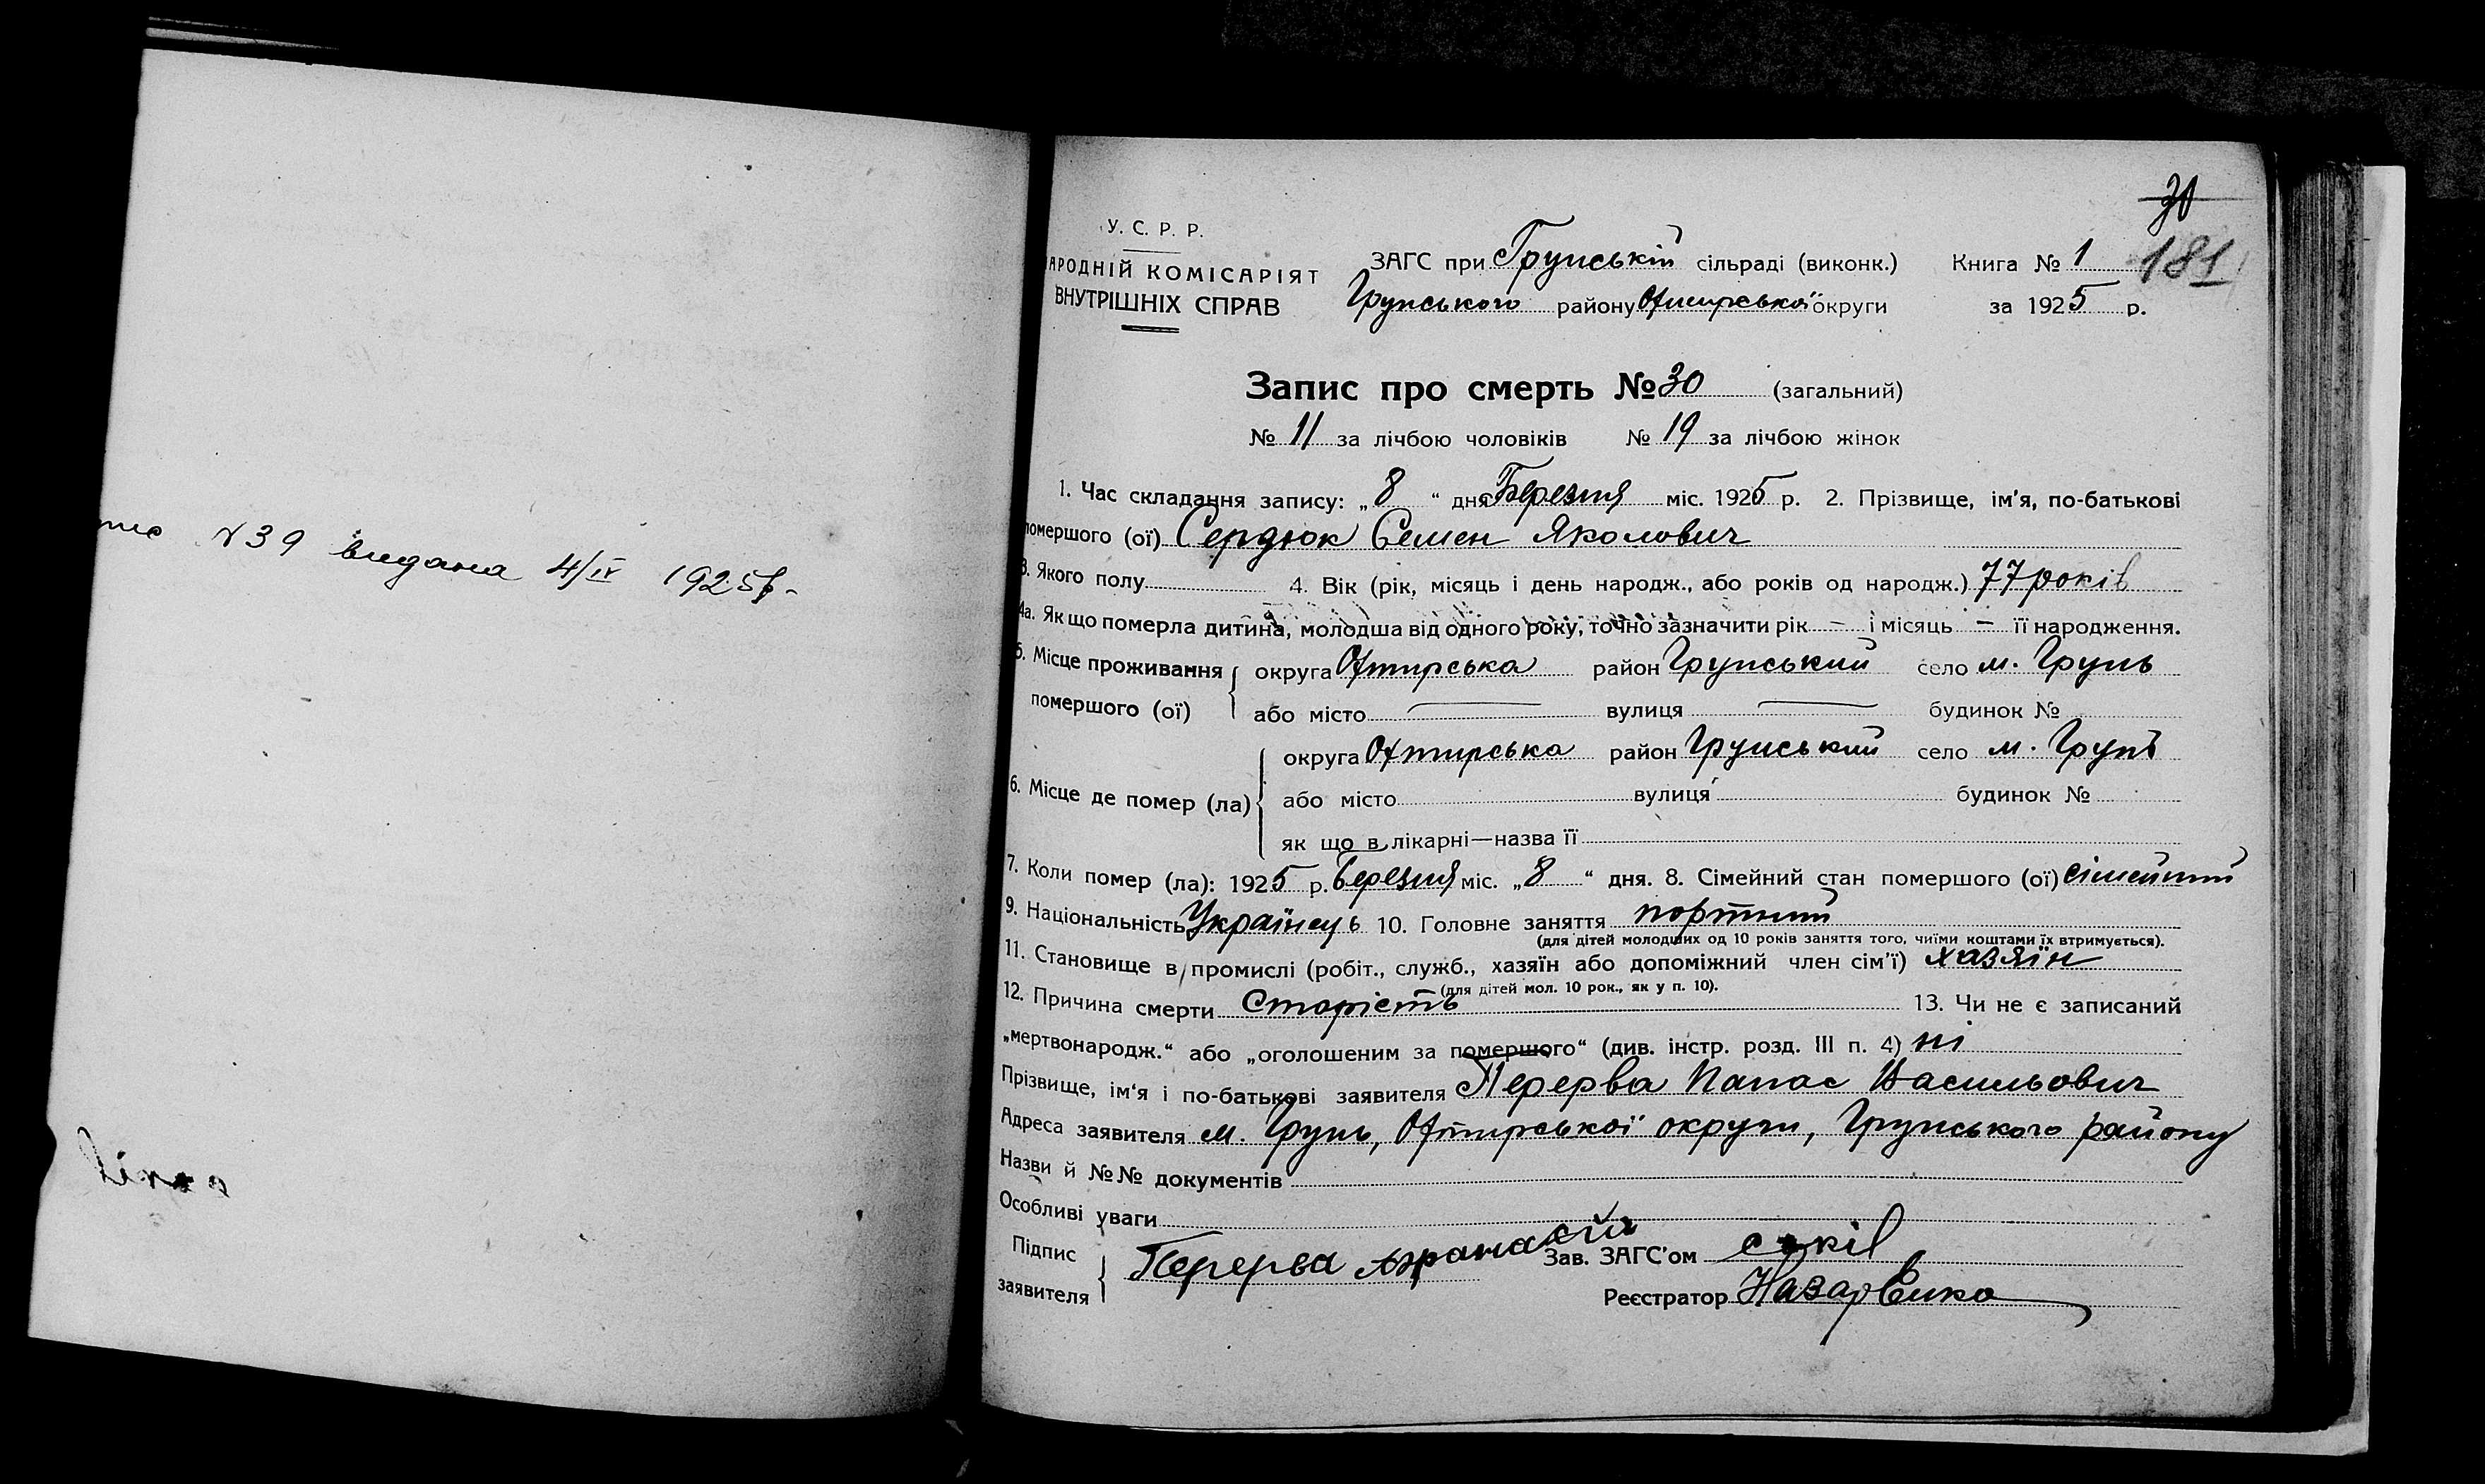 N 39 видана 4/IV 1925 р.
30
181
У. С. Р. Р.
АРОДНІЙ КОМІСАРІЯТ
ВНУТРІШНІХ СПРАВ
ЗАГС при Грунській сільраді (виконк.)
Грунського району Охтирської округи
Книга № 1
за 1925 р.
Запис про смерть № 30 (загальний)
№ 11 за лічбою чоловіків № 19 за лічбою жінок
1. Час складання запису: „8“ дня Березня міс. 1925 р. 2. Прізвище, ім'я, по-батькові
помершого (ої) Сердюк Семен Яколович
3. Якого полу 4. Вік (рік, місяць і день народж., або років од народж.) 77 років
4а. Як що померла дитина, молодша від одного року, точно зазначити рік – і місяць – її народження.
5. Місце проживання округа Охтирська район Грунський село м. Грунь
помершого (ої) або місто — вулиця — будинок №
округа Охтирська район Грунський село м. Грунь
6. Місце де помер (ла) або місто вулиця будинок №
як що в лікарні—назва її
7. Коли помер (ла): 1925 р. Березня міс. „8“ дня. 8. Сімейний стан помершого (ої) сімейний
9. Національність Українець 10. Головне заняття портний
(для дітей молодших од 10 років заняття того, чиїми коштами їх втримується).
11. Становище в промислі (робіт., служб., хазяїн або допоміжний член сім'ї) хазяїн
(для дітей мол. 10 рок., як у п. 10).
12. Причина смерти Старість 13. Чи не є записаний
„мертвонародж.“ або „оголошеним за помершого“ (див. інстр. розд. III п. 4) ні
Прізвище, ім'я і по-батькові заявителя Перерва Панас Васильович
Адреса заявителя м. Грунь, Охтирської округи, Грунського району
Назви й №№ документів
Особливі уваги
Підпис
заявителя
Перерва Афанасій
Зав. ЗАГС'ом
Реєстратор Назаренко